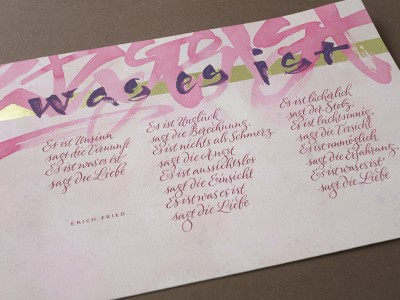 was es ist
Es ist Unsinn
sagt die Vernunft
Es ist was es ist
sagt die Liebe
ERICH FRIED
Es ist Unglück
sagt die Berechnung
Es ist nichts als Schmerz
sagt die Angst
Es ist aussichtslos
sagt die Einsicht
Es ist was es ist
sagt die Liebe
Es ist lächerlich
sagt der Stolz
Es ist leichtsinnig
sagt die Vorsicht
Es ist unmöglich
sagt die Erfahrung
Es ist was es ist
sagt die Liebe